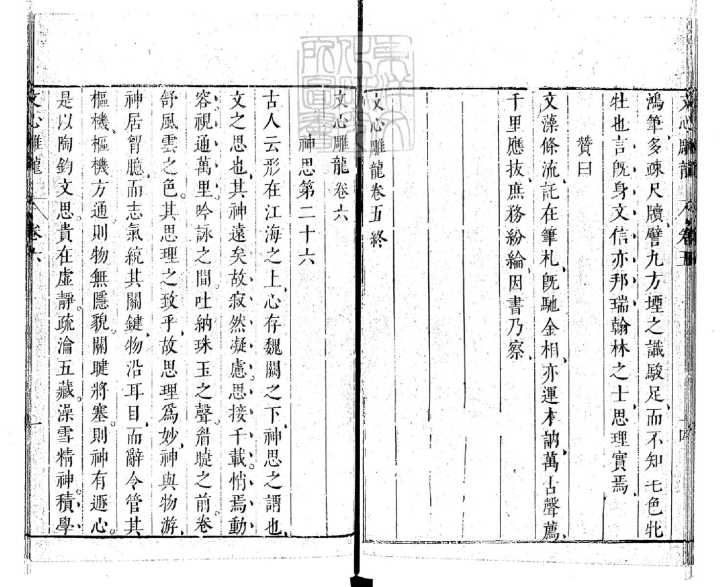 文心雕龍 卷五 十四
鴻筆多疎尺牘譬九方堙之識駿足而不知毛色牝
牡也言旣身文信亦邦瑞翰林之士思理實焉
贊曰
文藻條流託在筆札旣馳金相亦運木訥萬古聲薦
千里應拔庶務紛綸因書乃察
文心雕龍卷五終
文心雕龍卷六
神思第二十六
古人云形在江海之上心存魏闕之下神思之謂也
文之思也其神遠矣故寂然凝慮思接千載悄焉動
容視通萬里吟詠之間吐納珠玉之聲眉睫之前卷
舒風雲之色其思理之致乎故思理爲妙神與物游
神居胷臆而志氣統其關鍵物沿耳目而辭令管其
樞機樞機方通則物無隱貌關鍵將塞則神有遯心
是以陶鈞文思貴在虛靜疏瀹五藏澡雪精神積學
文心雕龍 卷六 一